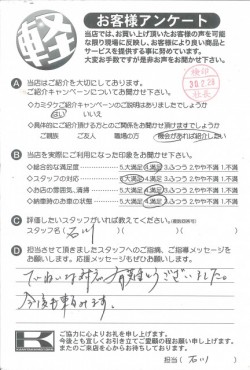 軽
お客様アンケート
当店では、お買い上げ頂いたお客様の声を可能
な限り現場に反映し、お客様により良い商品と
サービスを提供する事に努めています。
大変お手数ですが是非お声をお聞かせ下さい。
A 当店はご紹介を大切にしております。
ご紹介キャンペーンについてお聞かせ下さい。
◇カミタケご紹介キャンペーンのご説明はありましたでしょうか
はい いいえ
◇具体的にご紹介頂ける方との関係をお聞かせ頂けますでしょうか
ご親族 ご友人 職場の方 機会があれば紹介したい
B 当店を実際にご利用になった印象をお聞かせ下さい。
◇総合的な満足度 5.大満足 4.満足 3.ふつう 2.やや不満 1.不満
◇スタッフの対応 5.大満足 4.満足 3.ふつう 2.やや不満 1.不満
◇お店の雰囲気、清掃 5.大満足 4.満足 3.ふつう 2.やや不満 1.不満
◇納車時のお車の状態 5.大満足 4.満足 3.ふつう 2.やや不満 1.不満
C 評価したいスタッフがいれば教えてください。(複数回答可)
スタッフ名( 石川 )
D 担当させて頂きましたスタッフへのご感想、ご指導メッセージを
お願いします。応援メッセージもぜひお願いします。
ていねいな対応有難うございました。
今後も頼みます。
K
ご協力に心よりお礼を申し上げます。
今後とも宜しくお引き立てご愛顧の程お願い申し上げます。
またのご来店を心からお待ちしております。
担当( 石川 )